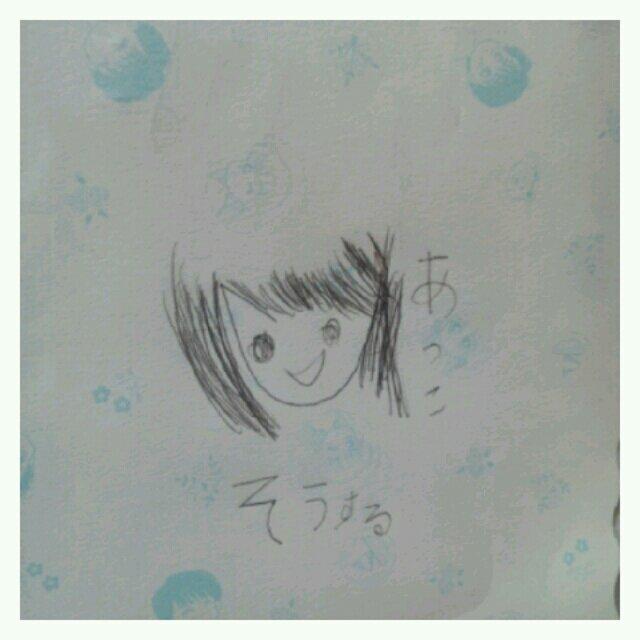 あっこ
そうする